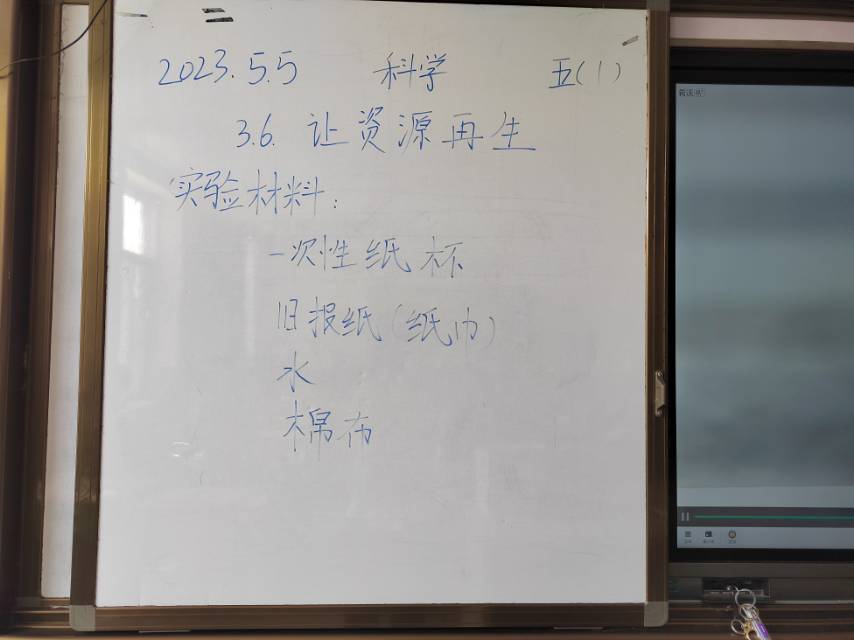 2023.5.5 科学 五(1)
3.6. 让资源再生
实验材料:
一次性纸杯
旧报纸(纸巾)
水
棉布